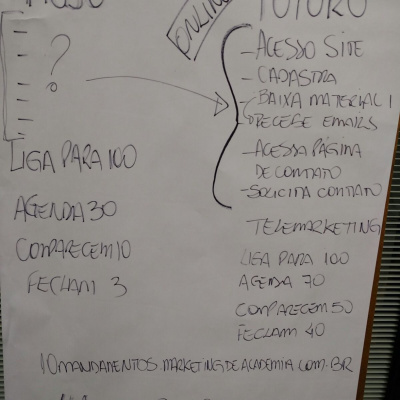 ?
LIGA PARA 100
AGENDA 30
COMPARECEM 10
FECHAM 3
ONLINE
FUTURO
- ACESSO SITE
- CADASTRA
- BAIXA MATERIAL
RECEBE EMAILS
- ACESSA PÁGINA
DE CONTATO
- SOLICITA CONTATO
TELEMARKETING
LIGA PARA 100
AGENDA 70
COMPARECEM 50
FECHAM 40
10MANDAMENTOS.MARKETINGDEACADEMIA.COM.BR